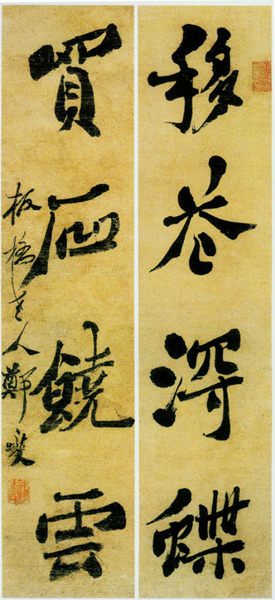 移花淂蝶
買石饒雲
板橋老人鄭燮